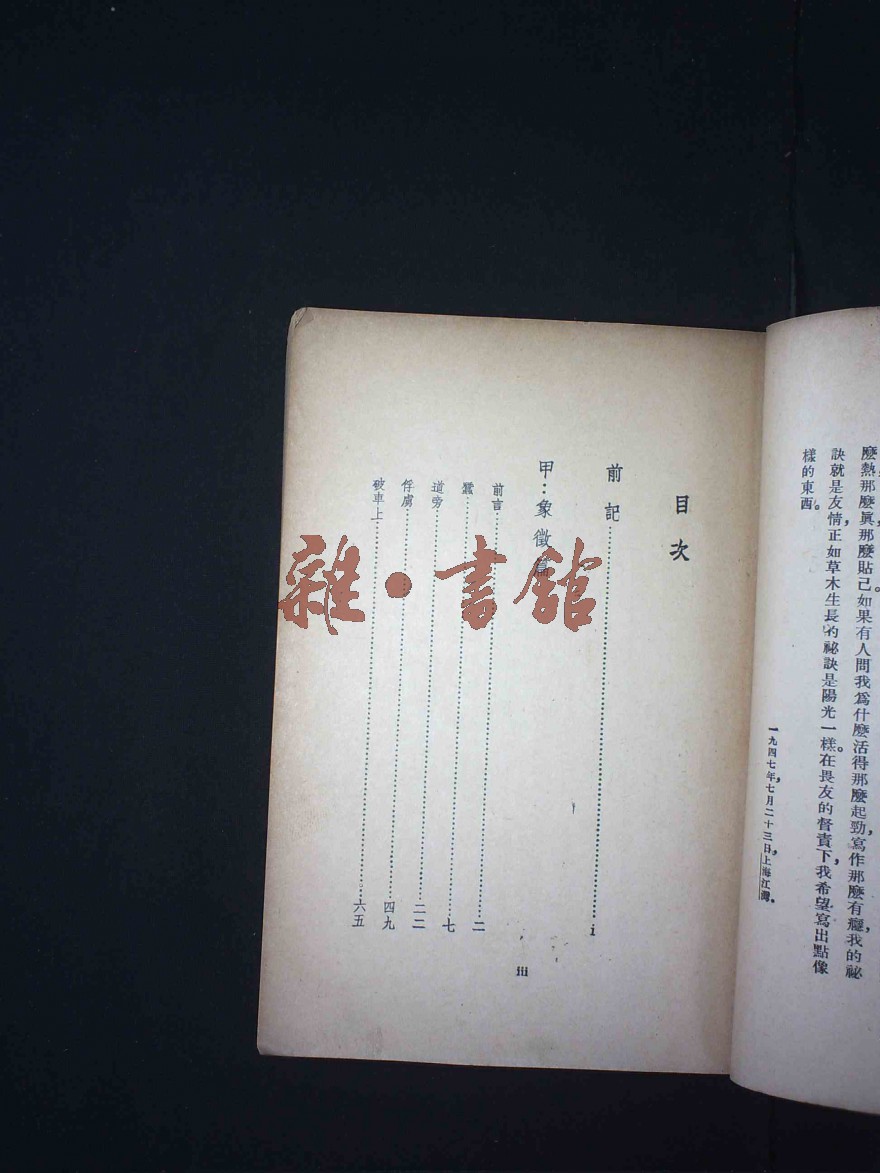 麼熱那麼眞,那麼貼己。如果有人問我爲什麼活得那麼起勁,寫作那麼有癮,我的祕
訣就是友情,正如草木生長的祕訣是陽光一樣。在畏友的督責下,我希望寫出點像
樣的東西。
一九四七年,七月二十三日,上海江灣。
目次
前記……i
甲:象徵篇
前言……二
蠶……七
道旁……二二
俘虜……四九
破車上……六五
iii
雜·書館